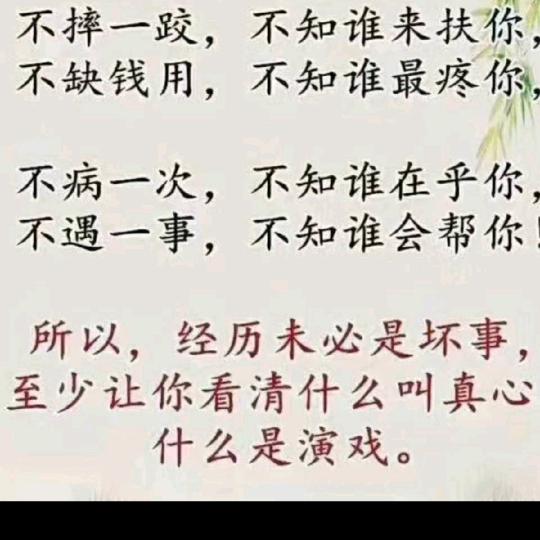 不摔一跤，不知谁来扶你，
不缺钱用，不知谁最疼你，
不病一次，不知谁在乎你，
不遇一事，不知谁会帮你！
所以，经历未必是坏事，
至少让你看清什么叫真心
什么是演戏。